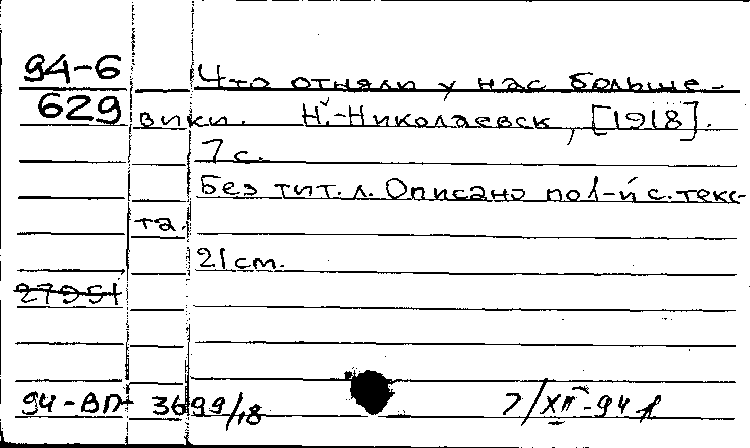 94-6 Что отняли у нас больше-
629 вики. Н.-Николаевск, [1918].
7 с.
Без тит. л. Описано по 1-й с. текс-
та.
21 см.
27951
94-ВП- 3699/18 7/XII-94